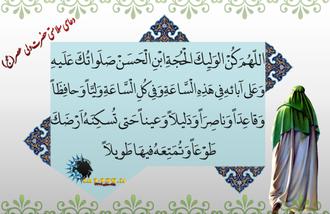 دعای سلامتی حضرت ولی عصر (عج)
اَللّهُمَّ كُنْ لِوَلِيِّكَ الْحُجَّةِ ابْنِ الْحَسَنِ صَلَواتُكَ عَلَيْهِ
وَعَلى آبائِهِ في هذِهِ السَّاعَةِ وَفي كُلِّ السَّاعَةِ وَلِيّاً وَحافِظاً
وَقاعِدَاً وَناصِراً وَدَليلاً وَعَيناً حَتى تُسكِنَهُ أَرْضَكَ
طَوْعَاً وَتُمَتِّعَهُ فيها طَويلاً